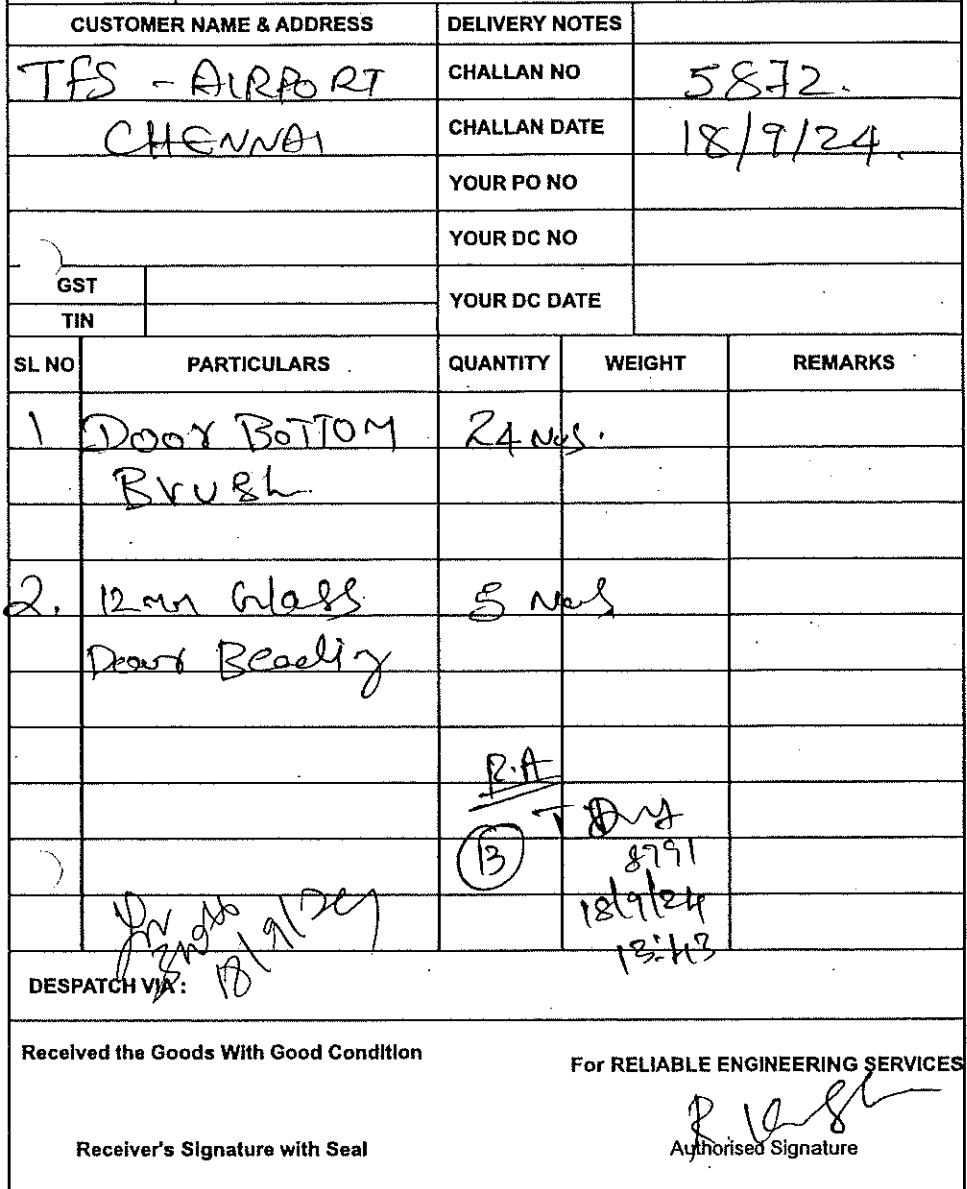 CUSTOMER NAME & ADDRESS
DELIVERY NOTES
TFS - AIRPORT
CHALLAN NO
5872.
CHENNAI
CHALLAN DATE
18/9/24.
YOUR PO NO
YOUR DC NO
GST
YOUR DC DATE
TIN
SL NO PARTICULARS QUANTITY WEIGHT REMARKS
1 Door BOTTOM 24 Nos.
Brush
2. 12 mm Glass 5 Nos
Door Beading
R.A
13
8791
18/9/24
13:43
18/9/24
DESPATCH VIA :
Received the Goods With Good Condition
For RELIABLE ENGINEERING SERVICES
Receiver's Signature with Seal
Authorised Signature